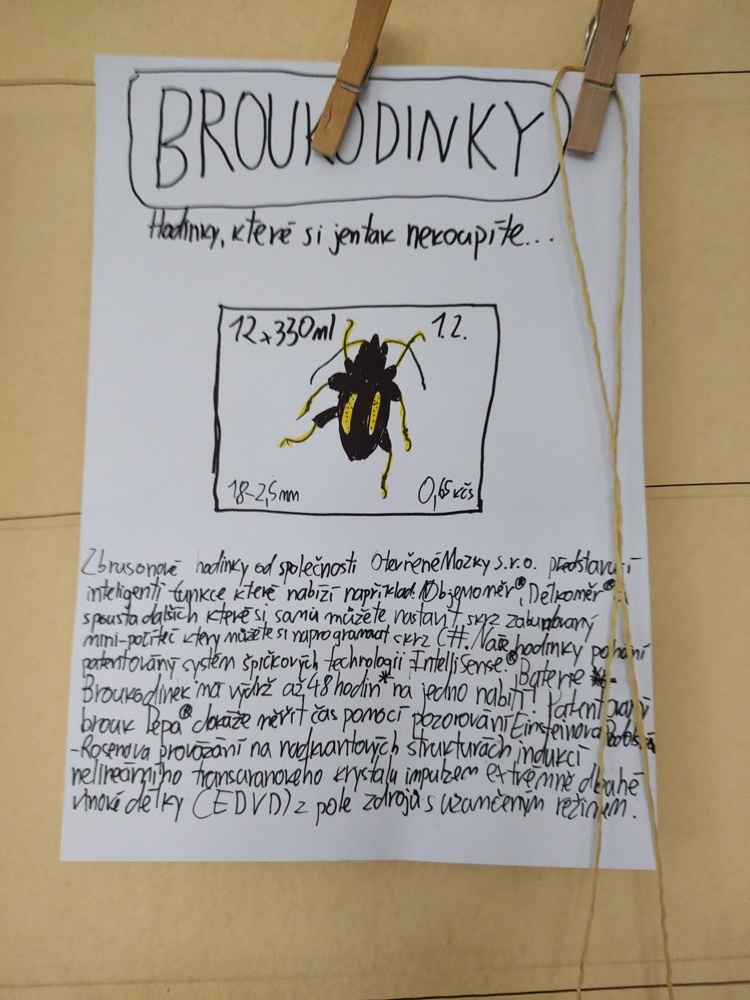 BROUKODINKY
Hodinky, které si jentak nekoupíte...
12x330ml 1.2.
18-2,5mm 0,65 Kčs
Zbrusonové hodinky od společnosti OtevřenéMozky s.r.o. představují
inteligentí funkce které nabízí například: Objemoměr®, Délkoměr® a
spousta dalších které si samy můžete nastavit skrz zabudovaný
mini-počíteč který můžete si naprogramovat skrz C#. Naše hodinky pohání
patentovaný systém špičkových technologií IntelliSense®. Baterie
Broukodinek má výdrž až 48 hodin* na jedno nabití! Patentovaný
brouk Pepa® dokáže měřit čas pomocí pozorování Einsteinova
-Rosenova provázání na nadkvantových strukturách indukcí
nelineárního transuranového krystalu impulzem extrémně dlouhé
vlnové délky (EDVD) z pole zdrojů s uzamčeným režimem.